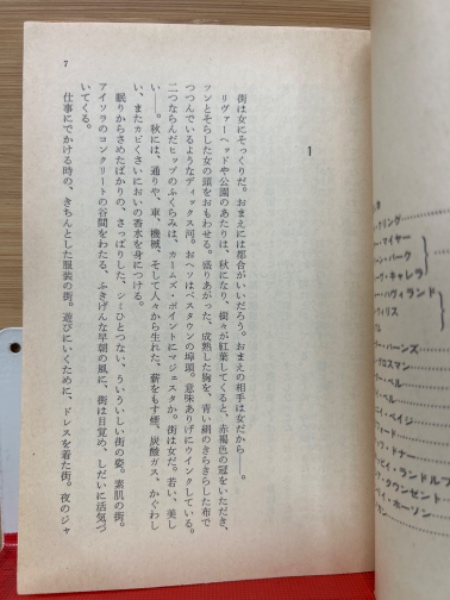 7
1
街は女にそっくりだ。おまえには都合がいいだろう。おまえの相手は女だから――。
リヴァーヘッドや公園のあたりは、秋になり、樹々が紅葉してくると、赤褐色の冠をいただき、
ツンとそらした女の頭をおもわせる。盛りあがった、成熟した胸を、青い絹のきらきらした布で
つつんでいるようなディックス河。おヘソはベスタウンの埠頭。意味ありげにウインクしている。
二つならんだヒップのふくらみは、カームズ・ポイントにマジェスタか。街は女だ。若い、美し
い――。秋には、通りや、車、機械、そして人々から生れた、薪をもす煙、炭酸ガス、かぐわし
い、またカビくさいにおいの香水を身につける。
眠りからさめたばかりの、さっぱりした、シミひとつない、ういういしい街の姿。素肌の街。
アイソラのコンクリートの谷間をわたる、ふきげんな早朝の風に、街は目覚め、しだいに活気づ
いてくる。
仕事にでかける時の、きちんとした服装の街。遊びにいくために、ドレスを着た街。夜のジャ
クリング
ー・マイヤー
ーン・パーク
ーヴ・キャレラ
ー・ハヴィランド
・ウィリス
ー・バーンズ
・グロスマン
・ベル
・ベル
ニイ・ペイジ
フォード
・ドナー
ビイ・ランドルフ
・タウンゼンド
・ホーソン